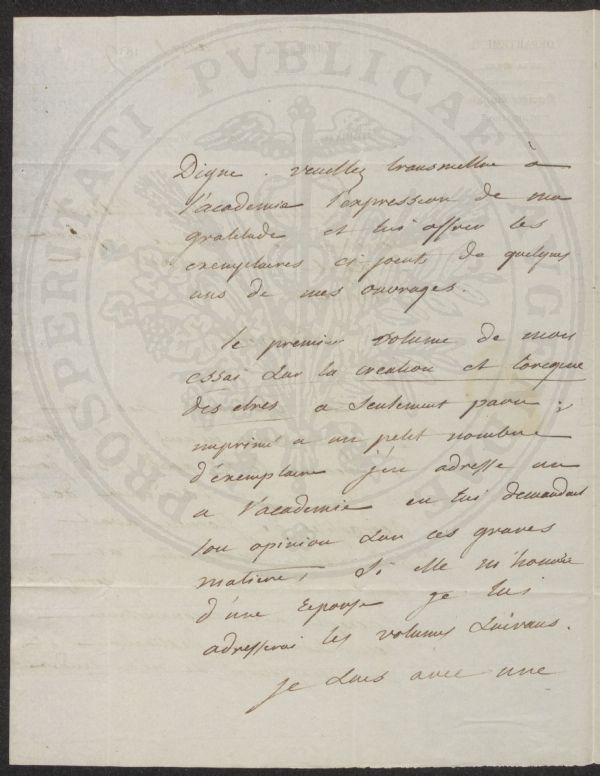 Digne. veuillez transmettre à
l'academie l'expression de ma
gratitude et lui offrir les
exemplaires ci joents de quelques
uns de mes ouvrages.
le premier volume de mon
essai sur la creation et l'origine
des etres a seulement paru ;
imprimé a un petit nombre
d'exemplaire j'en adresse un
a l'academie en lui demandant
son opinion sur ces graves
matieres, si elle m'honore
d'une reponse je lui
adresserai les volumes suivans.
je suis avec une
PROSPERITATI PUBLICAE AUGENDAE